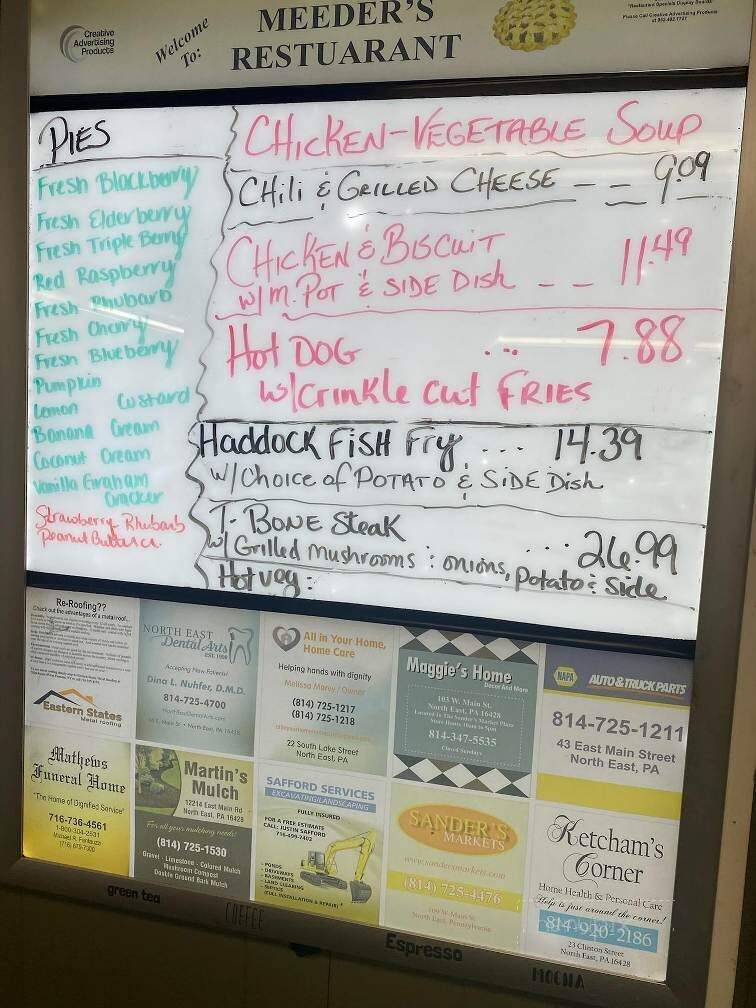 Creative
Advertising
Products
Welcome
To:
MEEDER'S
RESTUARANT
"Restaurant Specials Display Boards"
Please Call Creative Advertising Products
PIES
Fresh Blackberry
Fresh Elderberry
Fresh Triple Berry
Red Raspberry
Fresh Rhubarb
Fresh Cherry
Fresh Blueberry
Pumpkin
Lemon Custard
Banana Cream
Coconut Cream
Vanilla Graham
Cracker
Strawberry Rhubarb
CHICKEN-VEGETABLE SOUP
CHili & GRILLED CHEESE -- 9.09
CHICKEN & BISCUIT
w/ M. POT & SIDE DISH -- 11.49
Hot DOG ... 7.88
w/ Crinkle Cut FRIES
HADDOCK FISH Fry ... 14.39
w/ Choice of POTATO & SIDE DISH
T-BONE Steak ... 26.99
w/ Grilled Mushrooms : onions, potato : Side
Hot veg:
Re-Roofing??
Check out the advantages of a metal roof..
Eastern States
Metal roofing
NORTH EAST
Dental Arts
EST. 1998
Accepting New Patients!
Dina L. Nuhfer, D.M.D.
814-725-4700
North East, PA 16428
All in Your Home,
Home Care
Helping hands with dignity
Melissa Marey / Owner
(814) 725-1217
(814) 725-1218
22 South Lake Street
North East, PA
Maggie's Home
Decor And More
103 W. Main St.
North East, PA 16428
814-347-5535
Closed Sundays
NAPA
AUTO & TRUCK PARTS
814-725-1211
43 East Main Street
North East, PA
Mathews
Funeral Home
"The Home of Dignified Service"
716-736-4561
Martin's
Mulch
12214 East Main Rd
North East, PA 16428
For all your mulching needs!
(814) 725-1530
Gravel - Limestone - Colored Mulch
Mushroom Compost
Double Ground Bark Mulch
SAFFORD SERVICES
EXCAVATING/LANDSCAPING
FULLY INSURED
FOR A FREE ESTIMATE
CALL: JUSTIN SAFFORD
716-499-7402
- PONDS
- DRIVEWAYS
- BASEMENTS
- LAND CLEARING
- SEPTICS
(FULL INSTALLATION & REPAIR)
SANDER'S
MARKETS
www.sandersmarkets.com
(814) 725-4476
North East, Pennsylvania
Ketcham's
Corner
Home Health & Personal Care
Help is just around the corner!
814-920-2186
23 Clinton Street
North East, PA 16428
green tea
COFFEE
Espresso
MOCHA